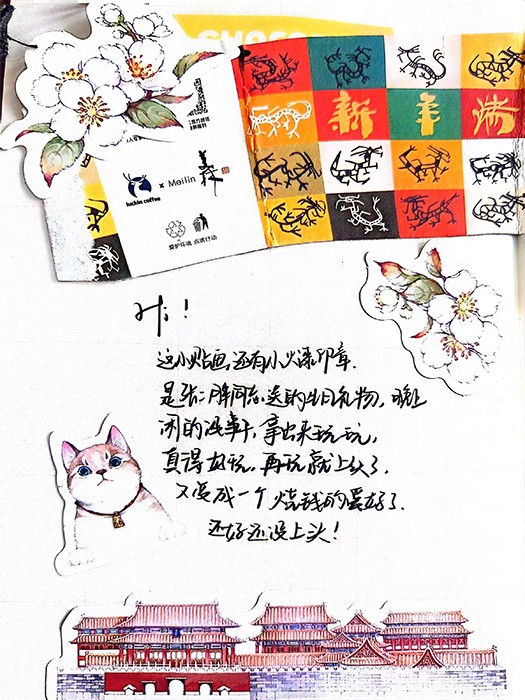 CHOCO
luckin coffee × Meilin
爱护环境 点滴行动
新年
Hi!
这小贴画,还有小火漆印章.
是张二胖同志送的生日礼物,晚上
闲的没事干,拿出来玩一玩,
真得好玩,再玩就上头了.
又变成一个烧钱的爱好了.
还好还没上头!